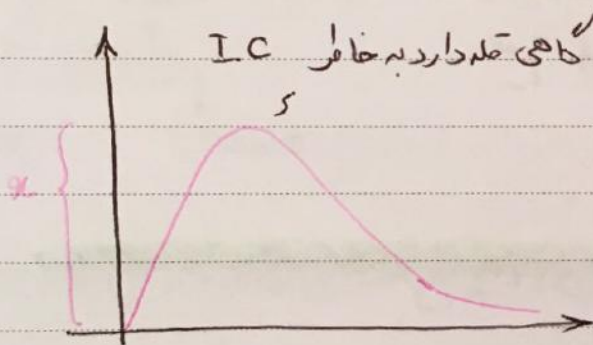 گاهی قله دارد به خاطر IC